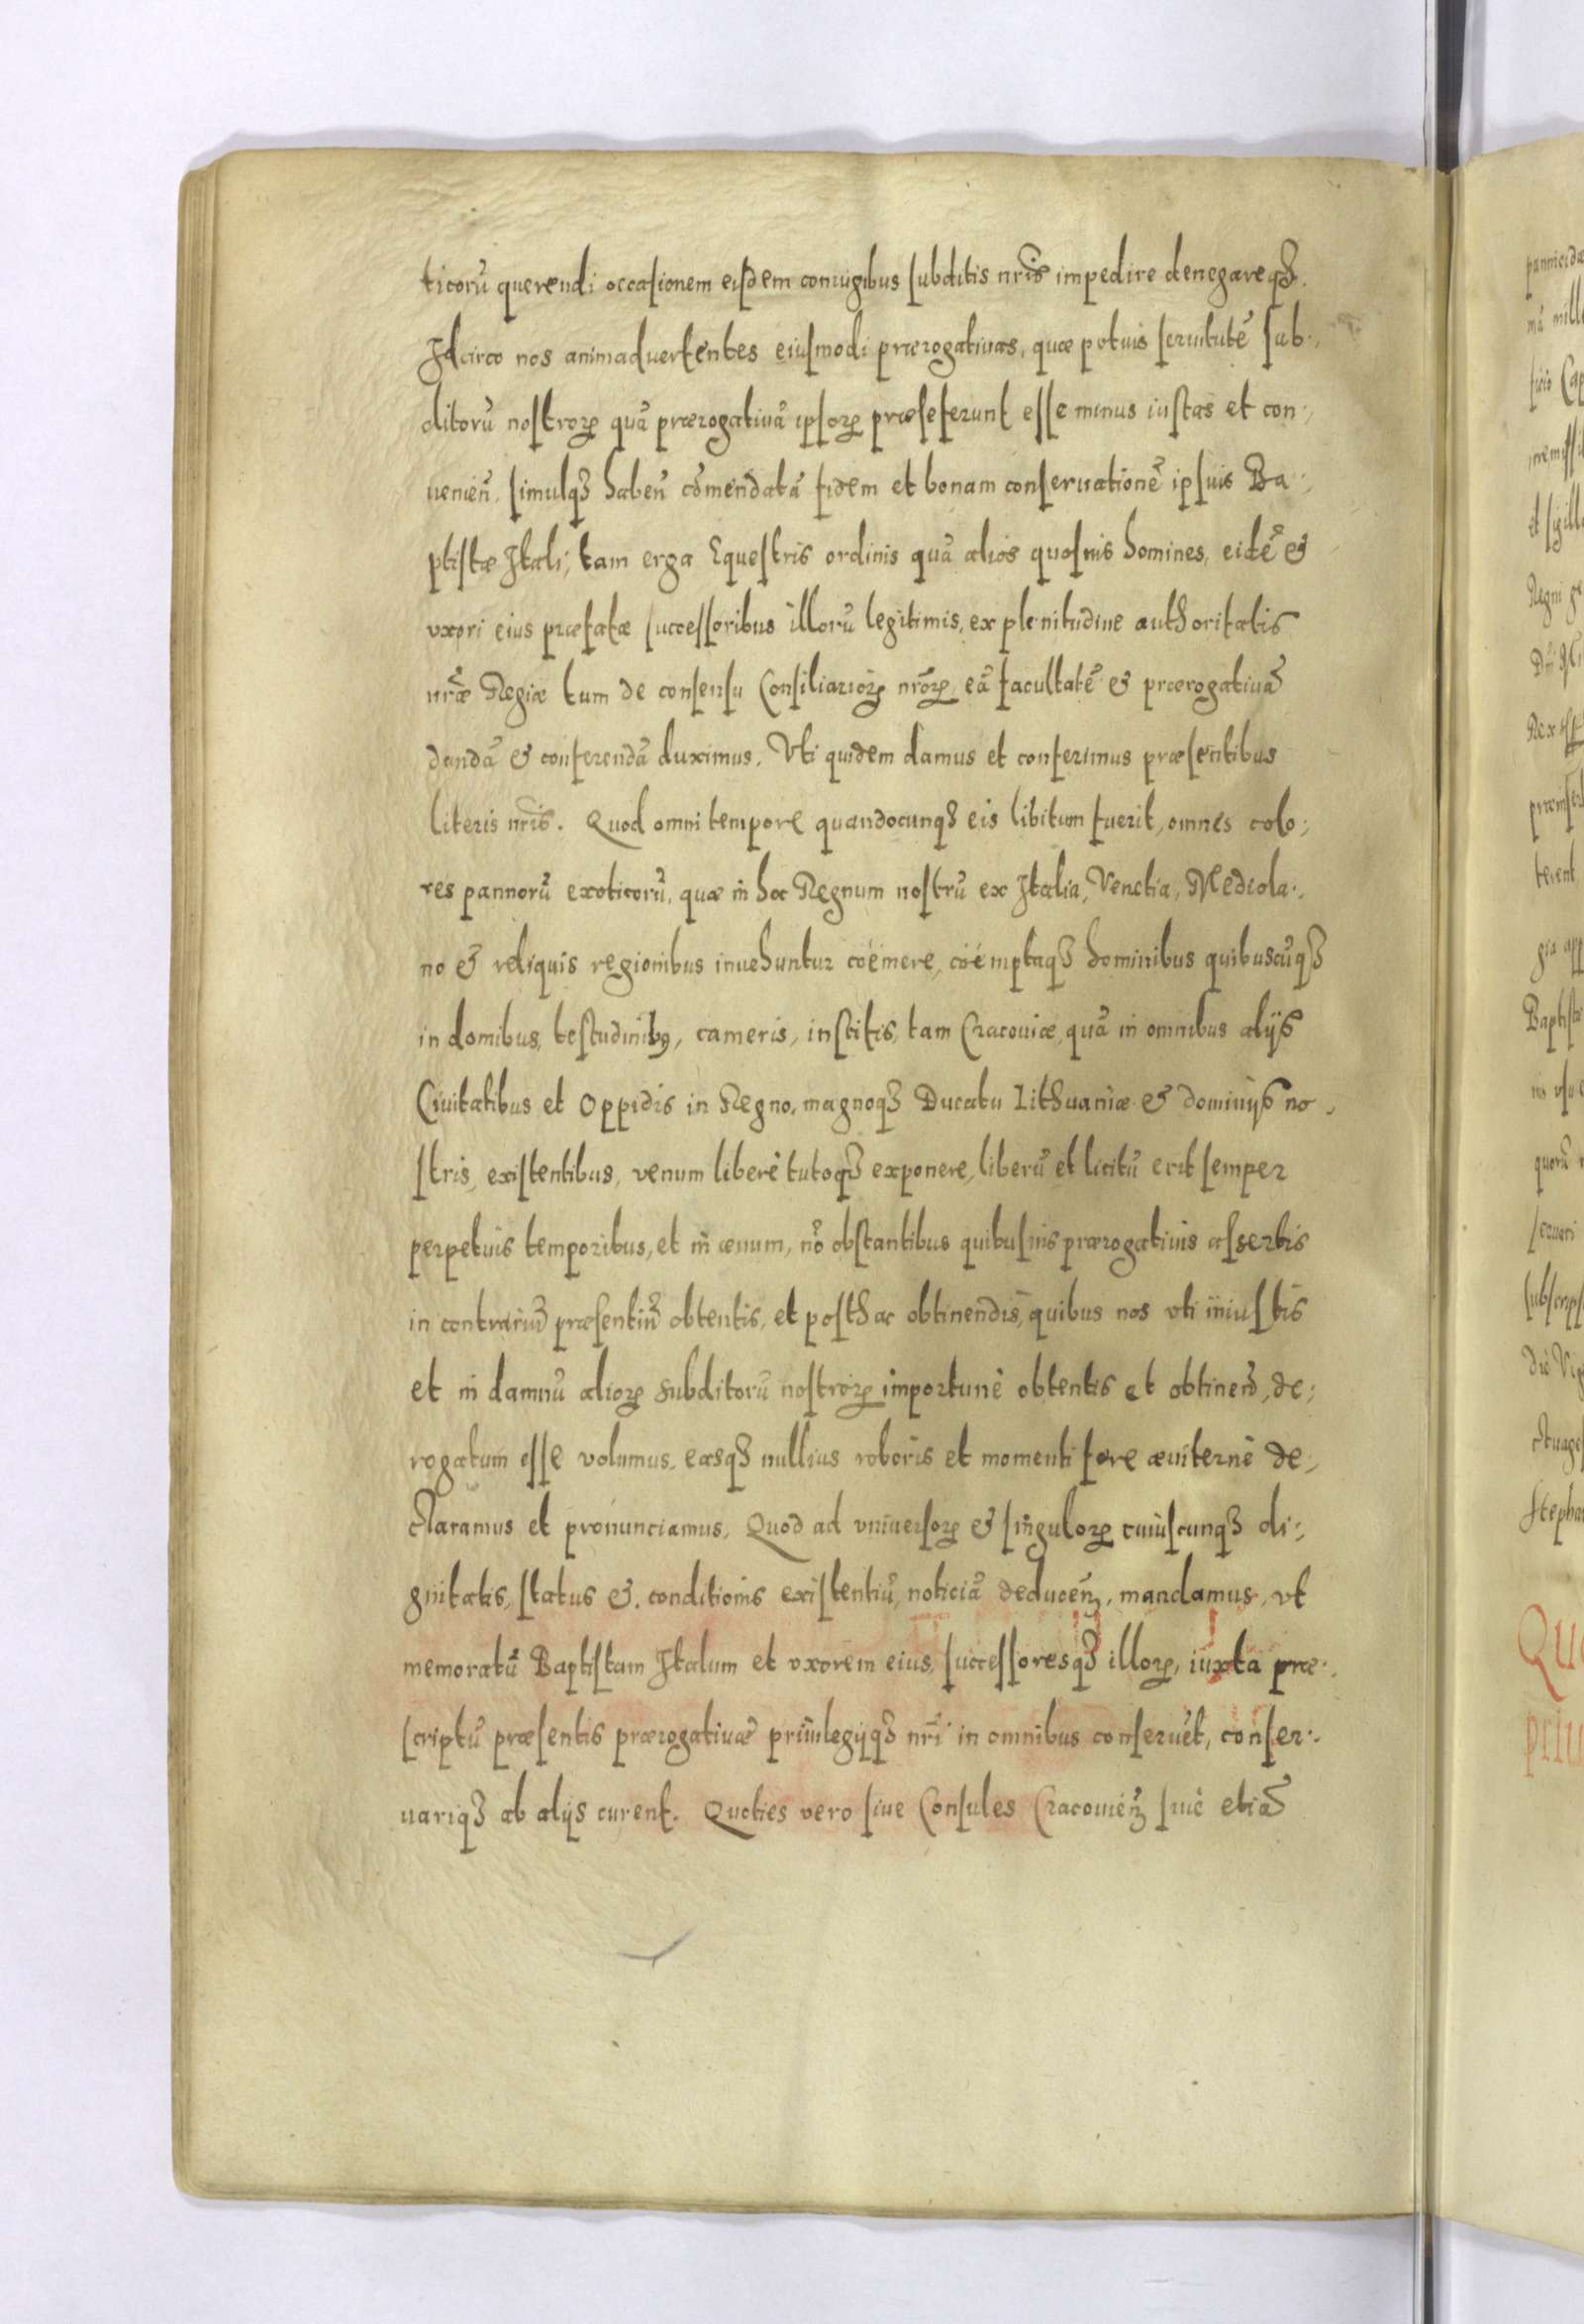 ticorū querendi occaſionem eiſdem coniugibus ſubditis nr̃is impedire denegareqꝫ.
Idcirco nos animaduertentes eiuſmodi prærogatiuas, quæ potius ſeruitutē ſub:
ditorū noſtroꝝ quā prærogatiuā ipſoꝝ præſeferunt eſſe minus iuſtas et con:
uenien̄, ſimulqꝫ haben̄ cōmendatā fidem et bonam conſeruationē ipſius Ba:
ptiſtæ Itali, tam erga Equeſtris ordinis quā alios quoſuis homines, eidē &
vxori eius præfatæ ſucceſſoribus illorū legitimis, ex plenitudine authoritatis
nr̃æ Regiæ tum de conſenſu Conſiliarioꝝ nr̃oꝝ, eā facultatē & prærogatiuā
dandā & conferendā duximus. Vti quidem damus et conferimus præſentibus
literis nr̃is. Quod omni tempore quandocunqꝫ eis libitum fuerit, omnes colo:
res pannorū exoticorū, quæ in hoc Regnum noſtrū ex Italia, Venetia, Mediola:
no & reliquis regionibus inuehuntur coëmere, coëmptaqꝫ hominibus quibuscūqꝫ
in domibus, teſtudinibꝰ, cameris, inſtitis, tam Cracouiæ, quā in omnibus alijs
Ciuitatibus et Oppidis in Regno, magnoqꝫ Ducatu Lithuaniæ & dominijs no:
ſtris, exiſtentibus, venum liberè tutoqꝫ exponere, liberū et licitū erit ſemper
perpetuis temporibus, et in æuum, nō obſtantibus quibuſuis prærogatiuis aſsertis
in contrariū præſentiū obtentis, et poſthac obtinendis, quibus nos vti iniuſtis
et in damnū alioꝝ ſubditorū noſtroꝝ importunè obtentis et obtinen̄, de:
rogatum eſſe volumus, easqꝫ nullius roboris et momenti fore æuiternè de:
claramus et pronunciamus. Quod ad vniuerſoꝝ & ſinguloꝝ cuiuſcunqꝫ di:
gnitatis, ſtatus & conditionis exiſtentiū, noticiā deducen̄, mandamus, vt
memoratū Baptiſtam Italum et vxorem eius, ſucceſſoresqꝫ illoꝝ, iuxta præ:
ſcriptū præſentis prærogatiuæ priuilegijqꝫ nr̃i in omnibus conſeruēt, conſer:
uariqꝫ ab alijs curent. Quoties vero ſiue Conſules Cracouien̄ ſiuè etiā